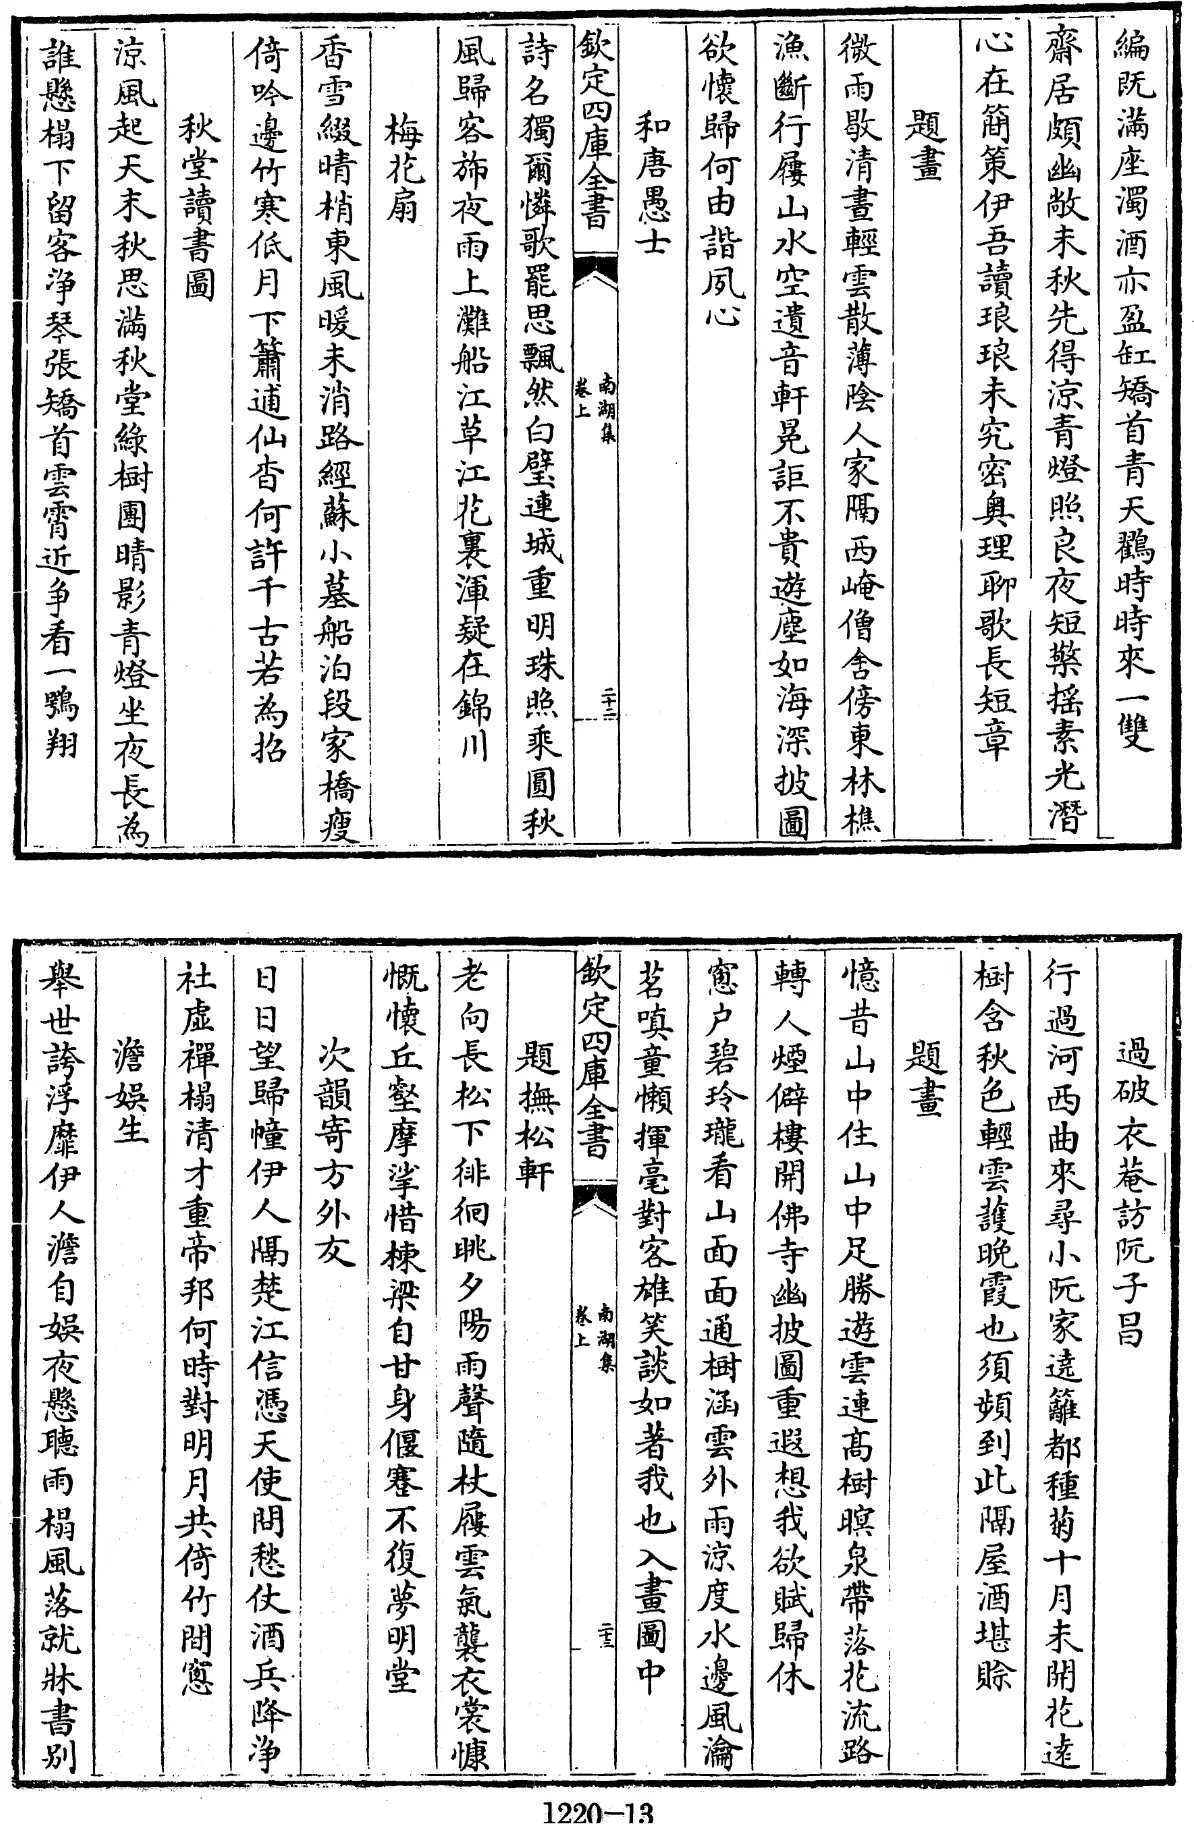 編既滿座濁酒亦盈缸矯首青天鸛時時來一雙
齋居頗幽敞未秋先得涼青燈照良夜短檠摇素光潛
心在簡策伊吾讀琅琅未究密奥理聊歌長短章
題畫
微雨歇清晝輕雲散薄陰人家隔西崦僧舍傍東林樵
漁斷行屨山水空遺音軒冕詎不貴遊塵如海深披圖
欲懷歸何由諧夙心
和唐愚士
欽定四庫全書
南湖集
卷上
二十二
詩名獨爾憐歌罷思飄然白璧連城重明珠照乘圓秋
風歸客斾夜雨上灘船江草江花裏渾疑在錦川
梅花扇
香雪綴晴梢東風暖未消路經蘇小墓船泊段家橋瘦
倚吟邊竹寒低月下簫逋仙杳何許千古若為招
秋堂讀書圖
涼風起天末秋思滿秋堂綠樹團晴影青燈坐夜長為
誰懸榻下留客净琴張矯首雲霄近争看一鶚翔
過破衣菴訪阮子昌
行過河西曲來尋小阮家遶籬都種菊十月未開花遠
樹含秋色輕雲護晚霞也須頻到此隔屋酒堪賒
題畫
憶昔山中住山中足勝遊雲連髙樹暝泉帶落花流路
轉人煙僻樓開佛寺幽披圖重遐想我欲賦歸休
窻户碧玲瓏看山面面通樹涵雲外雨涼度水邊風瀹
茗嗔童懶揮毫對客雄笑談如著我也入畫圖中
欽定四庫全書
南湖集
卷上
二十三
題撫松軒
老向長松下徘徊眺夕陽雨聲隨杖屨雲氣襲衣裳慷
慨懷丘壑摩挲惜棟梁自甘身偃蹇不復夢明堂
次韻寄方外友
日日望歸幢伊人隔楚江信憑天使問愁仗酒兵降净
社虚禪榻清才重帝邦何時對明月共倚竹間窻
澹娛生
舉世誇浮靡伊人澹自娛夜懸聽雨榻風落就牀書别
1220-13